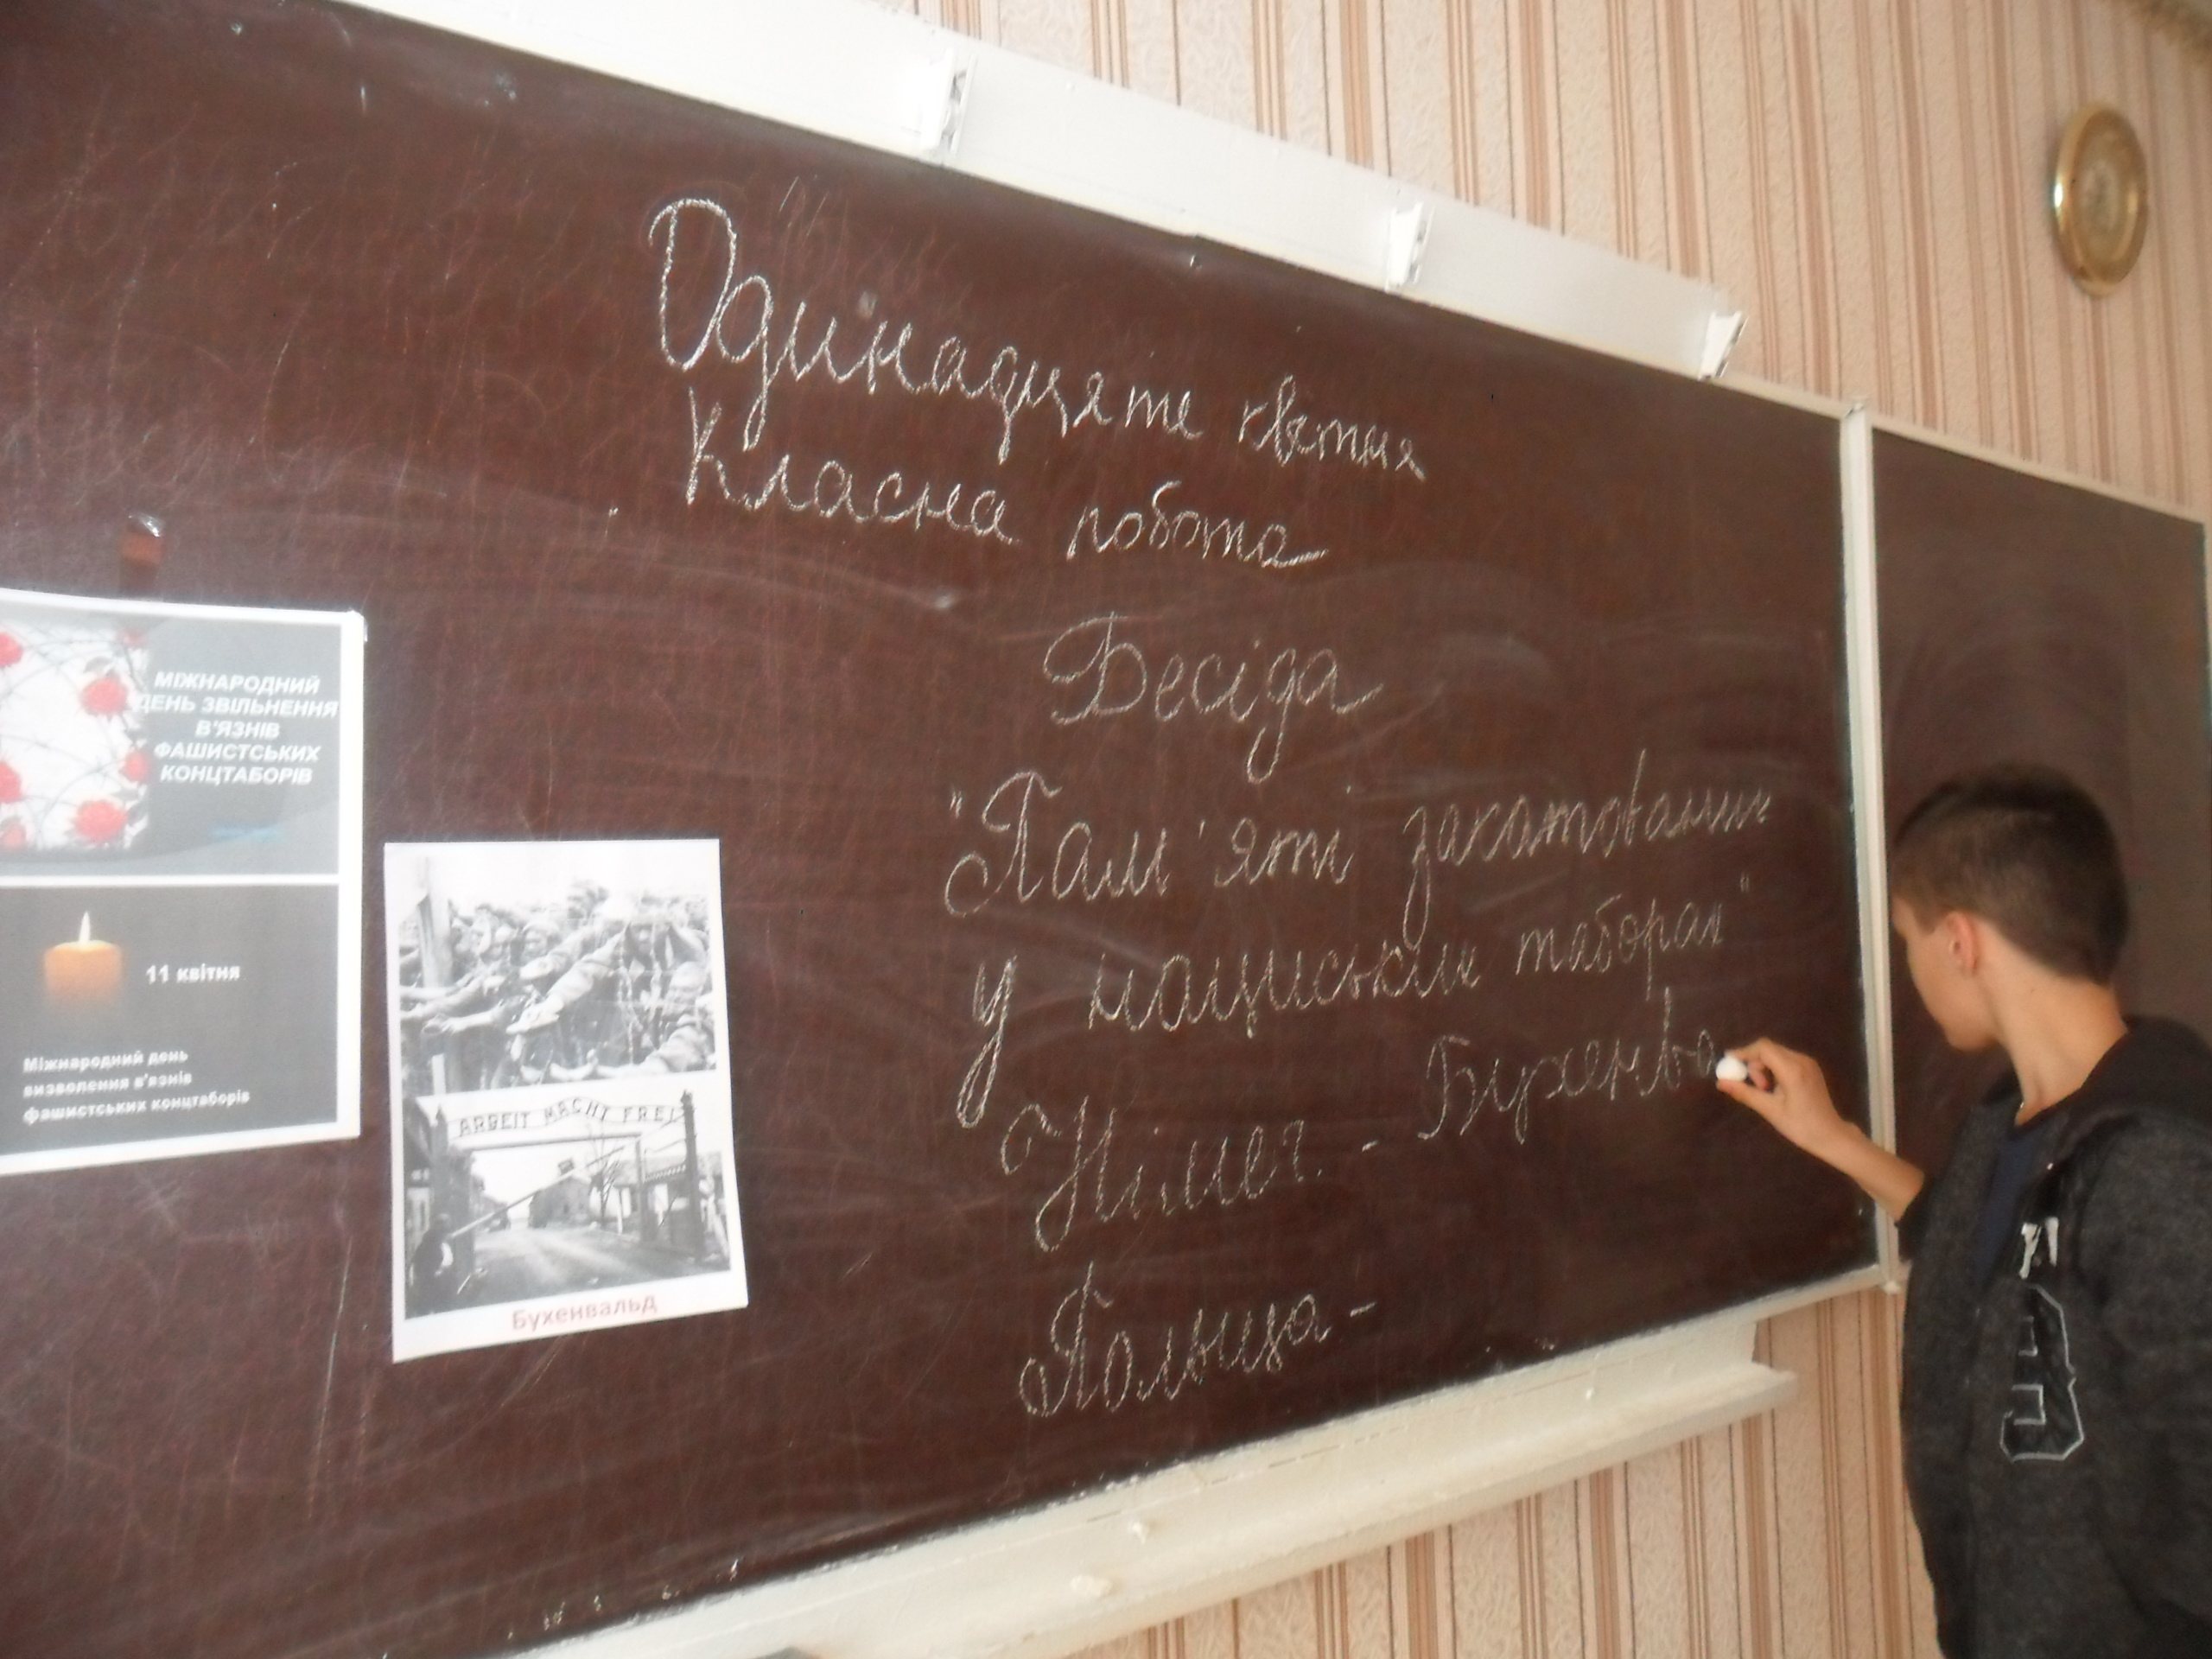 Одинадцяте квітня
Класна робота
Бесіда
"Пам'яті закатованих
у нациських таборах"
Німеч. - Бухенва
Польща -
МІЖНАРОДНИЙ
ДЕНЬ ЗВІЛЬНЕННЯ
В'ЯЗНІВ
ФАШИСТСЬКИХ
КОНЦТАБОРІВ
11 квітня
Міжнародний день
визволення в'язнів
фашистських концтаборів
ARBEIT MACHT FREI
Бухенвальд